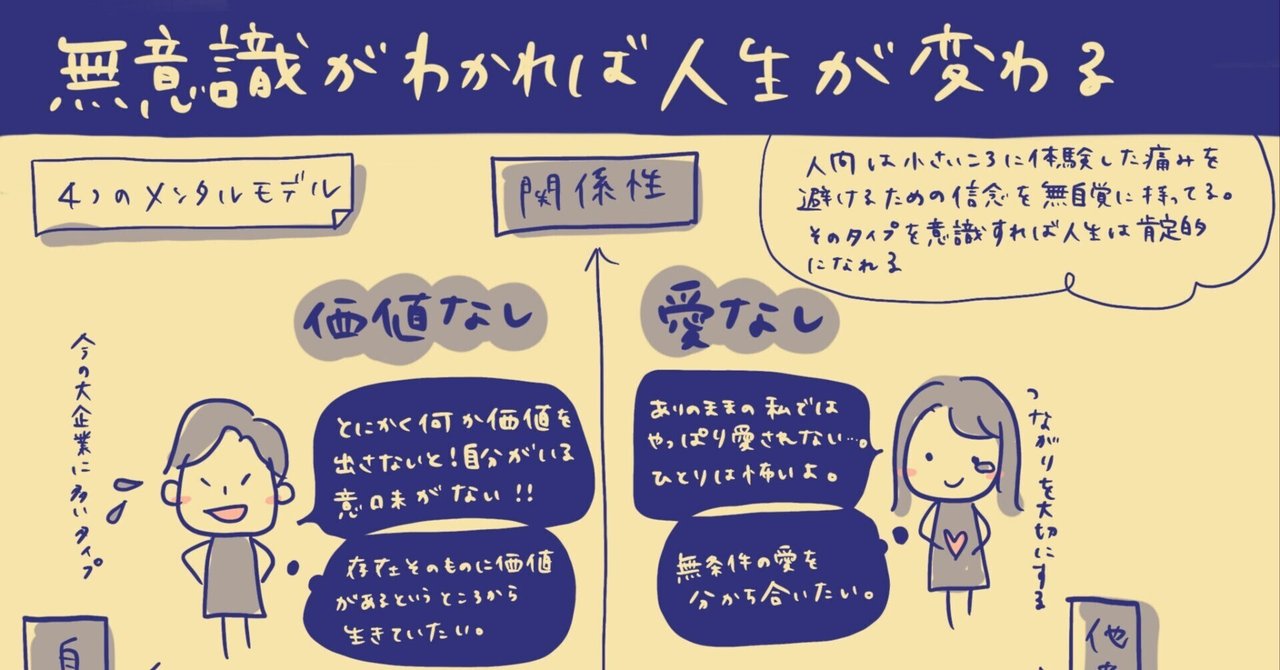 無意識がわかれば人生が変わる
4つのメンタルモデル
関係性
人間は小さいころに体験した痛みを
避けるための信念を無自覚に持ってる。
そのタイプを意識すれば人生は肯定的
になれる
価値なし
愛なし
今の大企業に多いタイプ
とにかく何か価値を
出さないと!自分がいる
意味がない!!
存在そのものに価値
があるというところから
生きていたい。
ありのままの私では
やっぱり愛されない…。
ひとりは怖いよ。
無条件の愛を
分かち合いたい。
つながりを大切にする
自
他